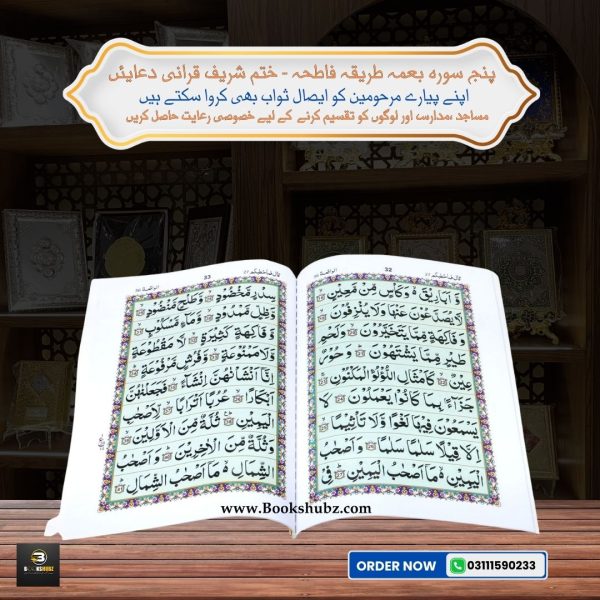 پنج سورہ بعمہ طریقہ فاطحہ - ختم شریف قرانی دعایئں
اپنے پیارے مرحومین کو ایصال ثواب بھی کروا سکتے ہیں
مساجد ،مدارس اور لوگوں کو تقسیم کرنے کے لیے خصوصی رعایت حاصل کریں
قال فما خطبکم ٢٧ 32 الواقعة ٥٦
وَ اَبَارِیْقَ ۙ وَ کَاْسٍ مِّنْ مَّعِیْنٍ
لَّا یُصَدَّعُوْنَ عَنْهَا وَ لَا یُنْزِفُوْنَ
وَ فَاكِهَةٍ مِّمَّا یَتَخَیَّرُوْنَ وَ لَحْمِ
طَیْرٍ مِّمَّا یَشْتَهُوْنَ وَ حُوْرٌ
عِیْنٌ كَاَمْثَالِ اللُّؤْلُؤِ الْمَكْنُوْنِ
جَزَآءًۢ بِمَا كَانُوْا یَعْمَلُوْنَ لَا
یَسْمَعُوْنَ فِیْهَا لَغْوًا وَّ لَا تَاْثِیْمًا
اِلَّا قِیْلًا سَلٰمًا سَلٰمًا وَ اَصْحٰبُ
الْیَمِیْنِ ۙ مَاۤ اَصْحٰبُ الْیَمِیْنِ فِیْ
قال فما خطبکم ٢٧ 33 الواقعة ٥٦
سِدْرٍ مَّخْضُوْدٍ وَّ طَلْحٍ مَّنْضُوْدٍ
وَّ ظِلٍّ مَّمْدُوْدٍ وَّ مَآءٍ مَّسْكُوْبٍ
وَّ فَاكِهَةٍ كَثِیْرَةٍ لَّا مَقْطُوْعَةٍ
وَّ لَا مَمْنُوْعَةٍ وَّ فُرُشٍ مَّرْفُوْعَةٍ
اِنَّاۤ اَنْشَاْنٰهُنَّ اِنْشَآءً فَجَعَلْنٰهُنَّ
اَبْكَارًا عُرُبًا اَتْرَابًا لِّاَصْحٰبِ
الْیَمِیْنِ ثُلَّةٌ مِّنَ الْاَوَّلِیْنَ
وَ ثُلَّةٌ مِّنَ الْاٰخِرِیْنَ وَ اَصْحٰبُ
الشِّمَالِ ۙ مَاۤ اَصْحٰبُ الشِّمَالِ
www.Bookshubz.com
BOOKSHUBZ
ORDER NOW 03111590233